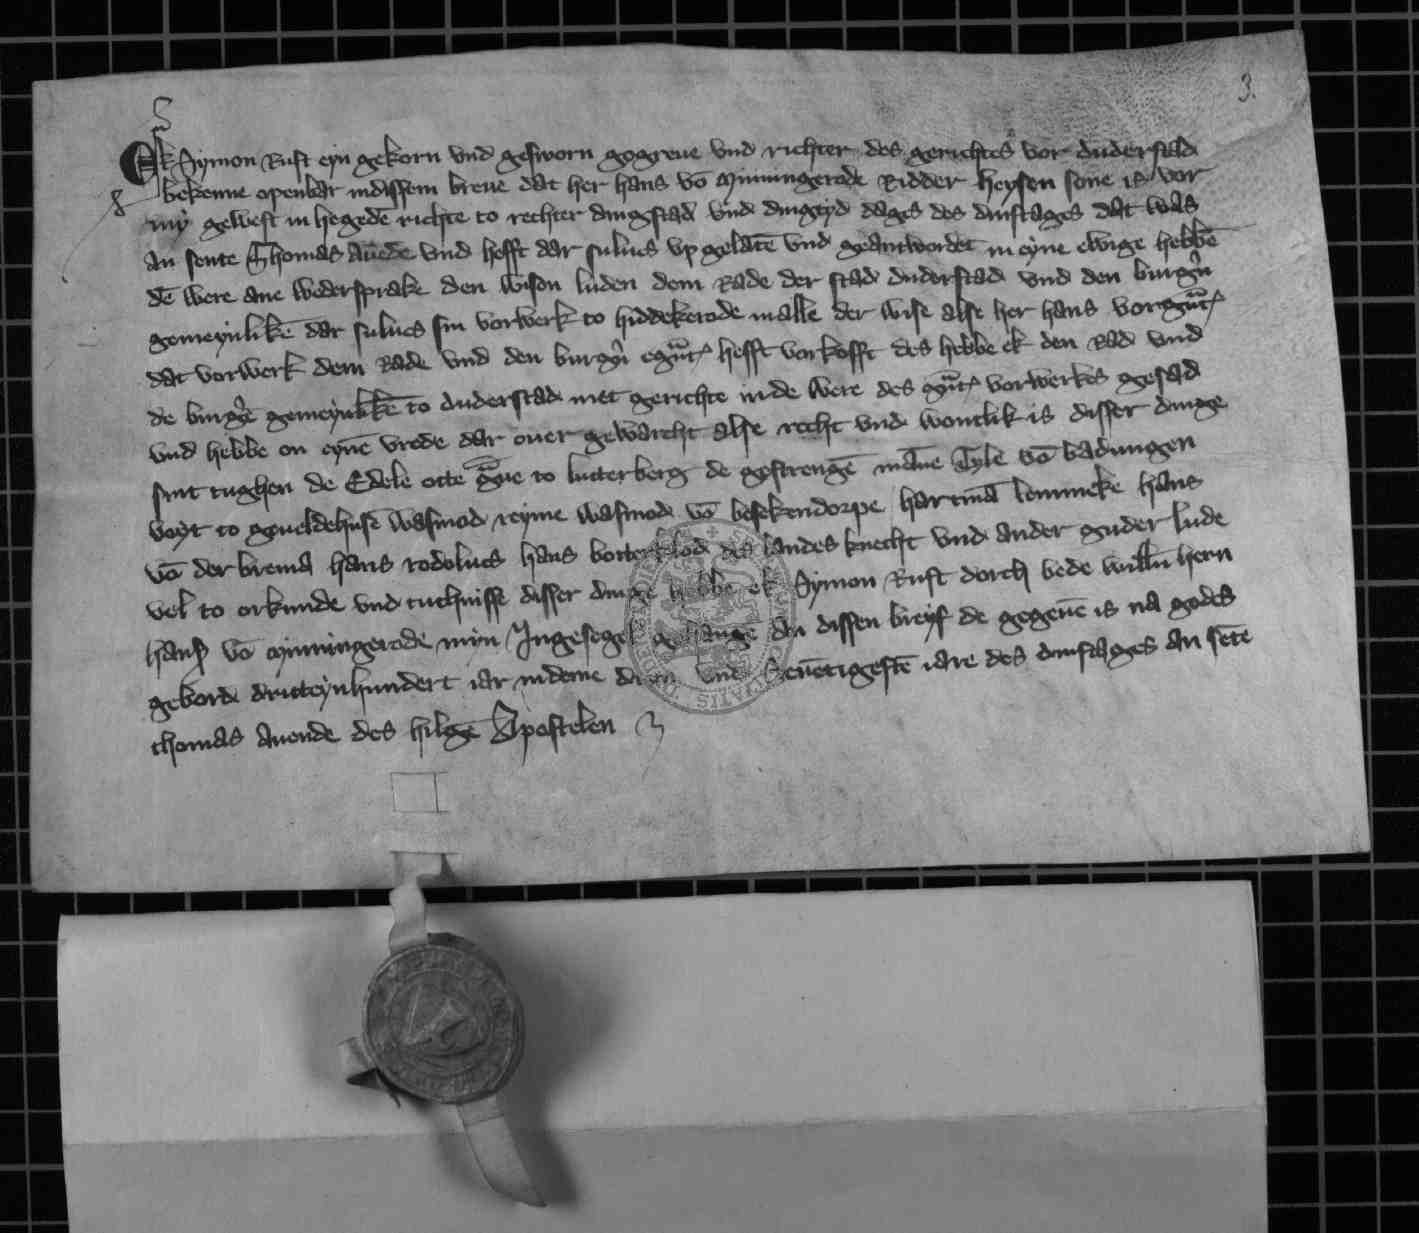 3.
Ek Symon Rust eyn gekorn vnd gesworn gogreue vnd richter des gerichtes vor duderstad
bekenne openbar indissem breue dat her hans vō Minningerode Ridder heysen sone is vor
my gewest in hegedē richte to rechter dingstad vnd dingtyd dages des dinstages dat was
an sente Thomas auēde vnd hefft dar sulues vp gelatē vnd geantwordet in eyne ewige hebbē
dē were ane wedersprake den wisen luden dem Rade der stad duderstad vnd den burgern
gemeynlikē dar sulues sin vorwerk to hiddekerode in alle der wise alse her hans vorgūt
dat vorwerk dem Rade vnd den burgern egūt hefft vorkofft des hebbe ek den Rad vnd
de burgere gemeynlikē to duderstad met gerichte in de were des gūt vorwerkes gesad
vnd hebbe on eynē vrede dar ouer gewarcht alse recht vnd wontlik is disser dinge
sint tughen de Edele otte graue to lutterberg de gestrengē manne Tyle vō badungen
voyt to geueldehusē wasmod reyme wasmod vō besekendorpe hartmā lemmeke hans
vō der brema hans rodolues hans botter des landes knecht vnd ander guder lude
vel to orkunde vnd tuchnisse disser dinge hebbe ek Symon Rust dorch bede willn hern
hanses vō Minningerode myn Ingesegel gehange an dissen breyf de gegeuē is na godes
gebord dritteynhundert iar in deme vnd Seuētigestē iare des dinstages an sēte
thomas auende des hilgē Apostelen